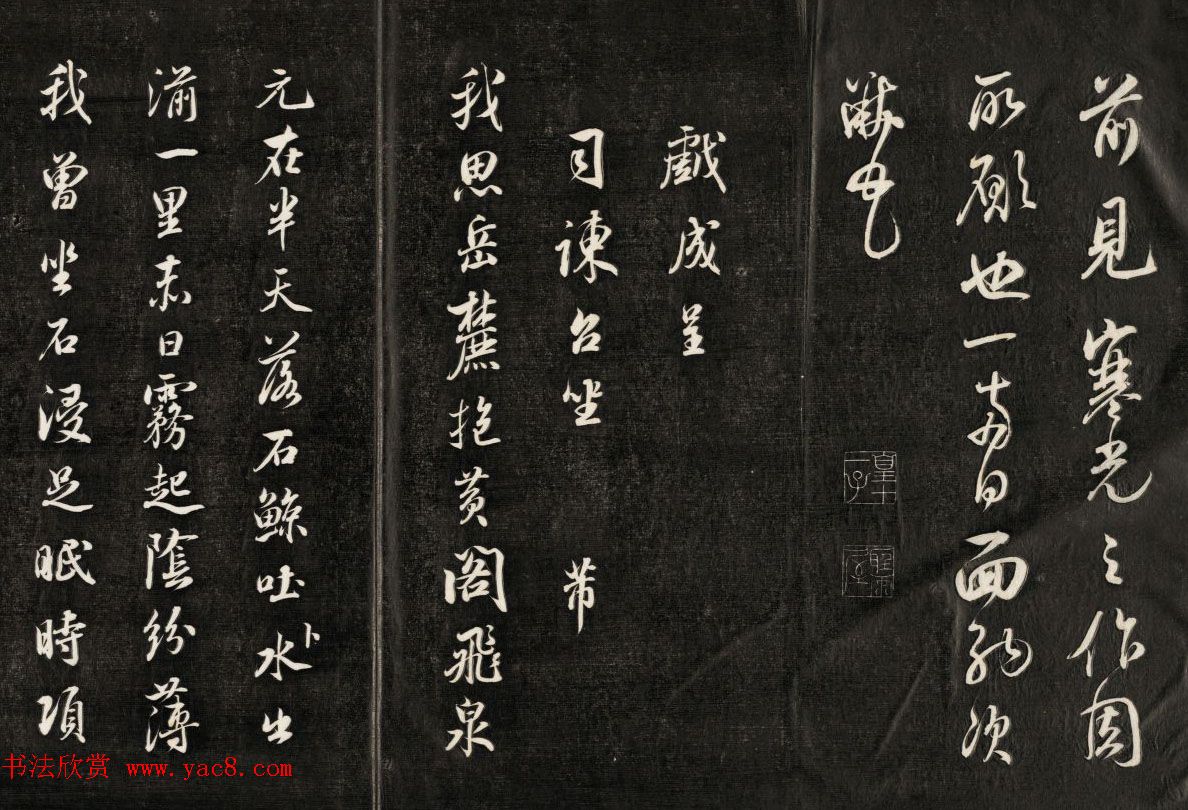 前見寒光之作固
所願也一兩日面納次
黻也
戲成呈
司諫台坐 芾
我思岳麓抱黄閣飛泉
元在半天落石鯨吐水卜出
湔一里赤日霧起陰紛薄
我曾坐石浸足眠時項
书法欣赏 www.yac8.com